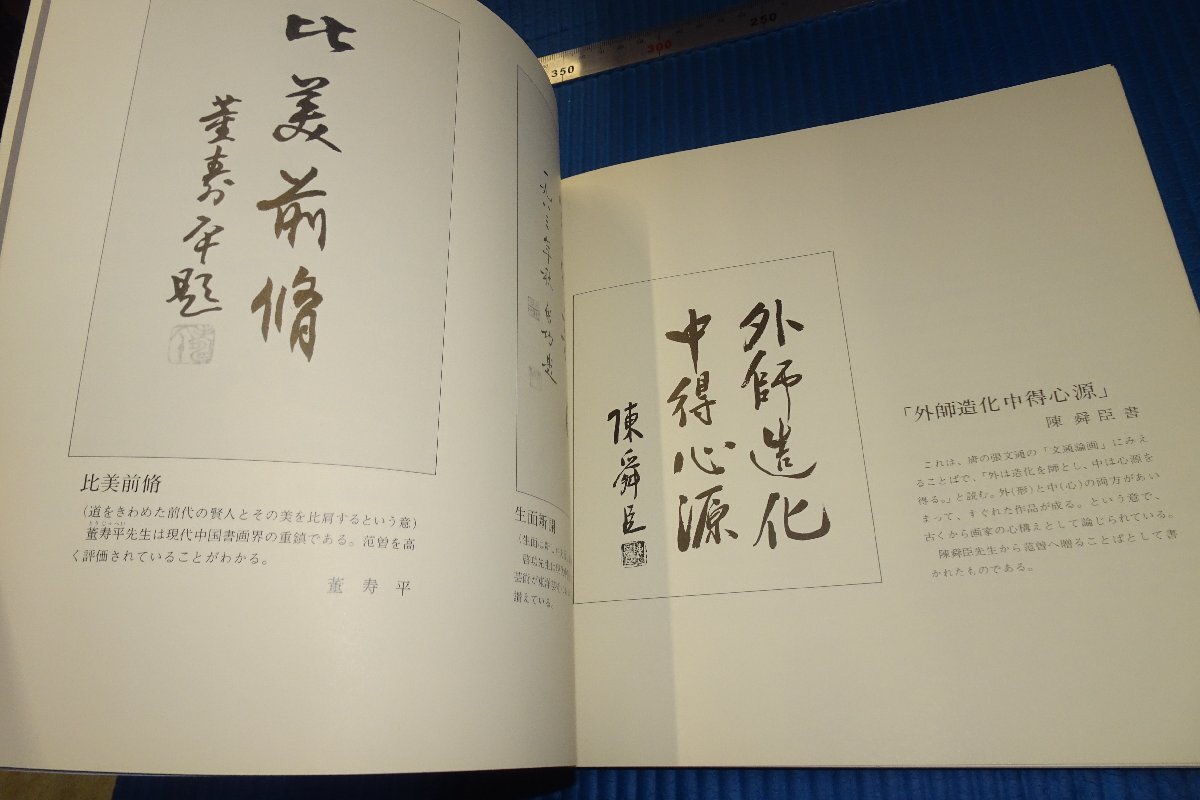 比美前脩
董寿平题
比美前脩
(道をきわめた前代の賢人とその美を比肩するという意)
とうじゅへい
董寿平先生は現代中国書画界の重鎮である。范曽を高
く評価されていることがわかる。
董寿平
一九八三年秋 启功题
生面新開
(生面に新
啓功先生に
芸術が東洋
讃えている。
外師造化
中得心源
陳舜臣
「外師造化中得心源」
陳舜臣書
これは、唐の張文通の「文通論画」にみえ
ることばで、「外は造化を師とし、中は心源を
得る。」と読む。外(形)と中(心)の両方があい
まって、すぐれた作品が成る。という意で、
古くから画家の心構えとして論じられている。
陳舜臣先生から范曽へ贈ることばとして書
かれたものである。
350
300
250